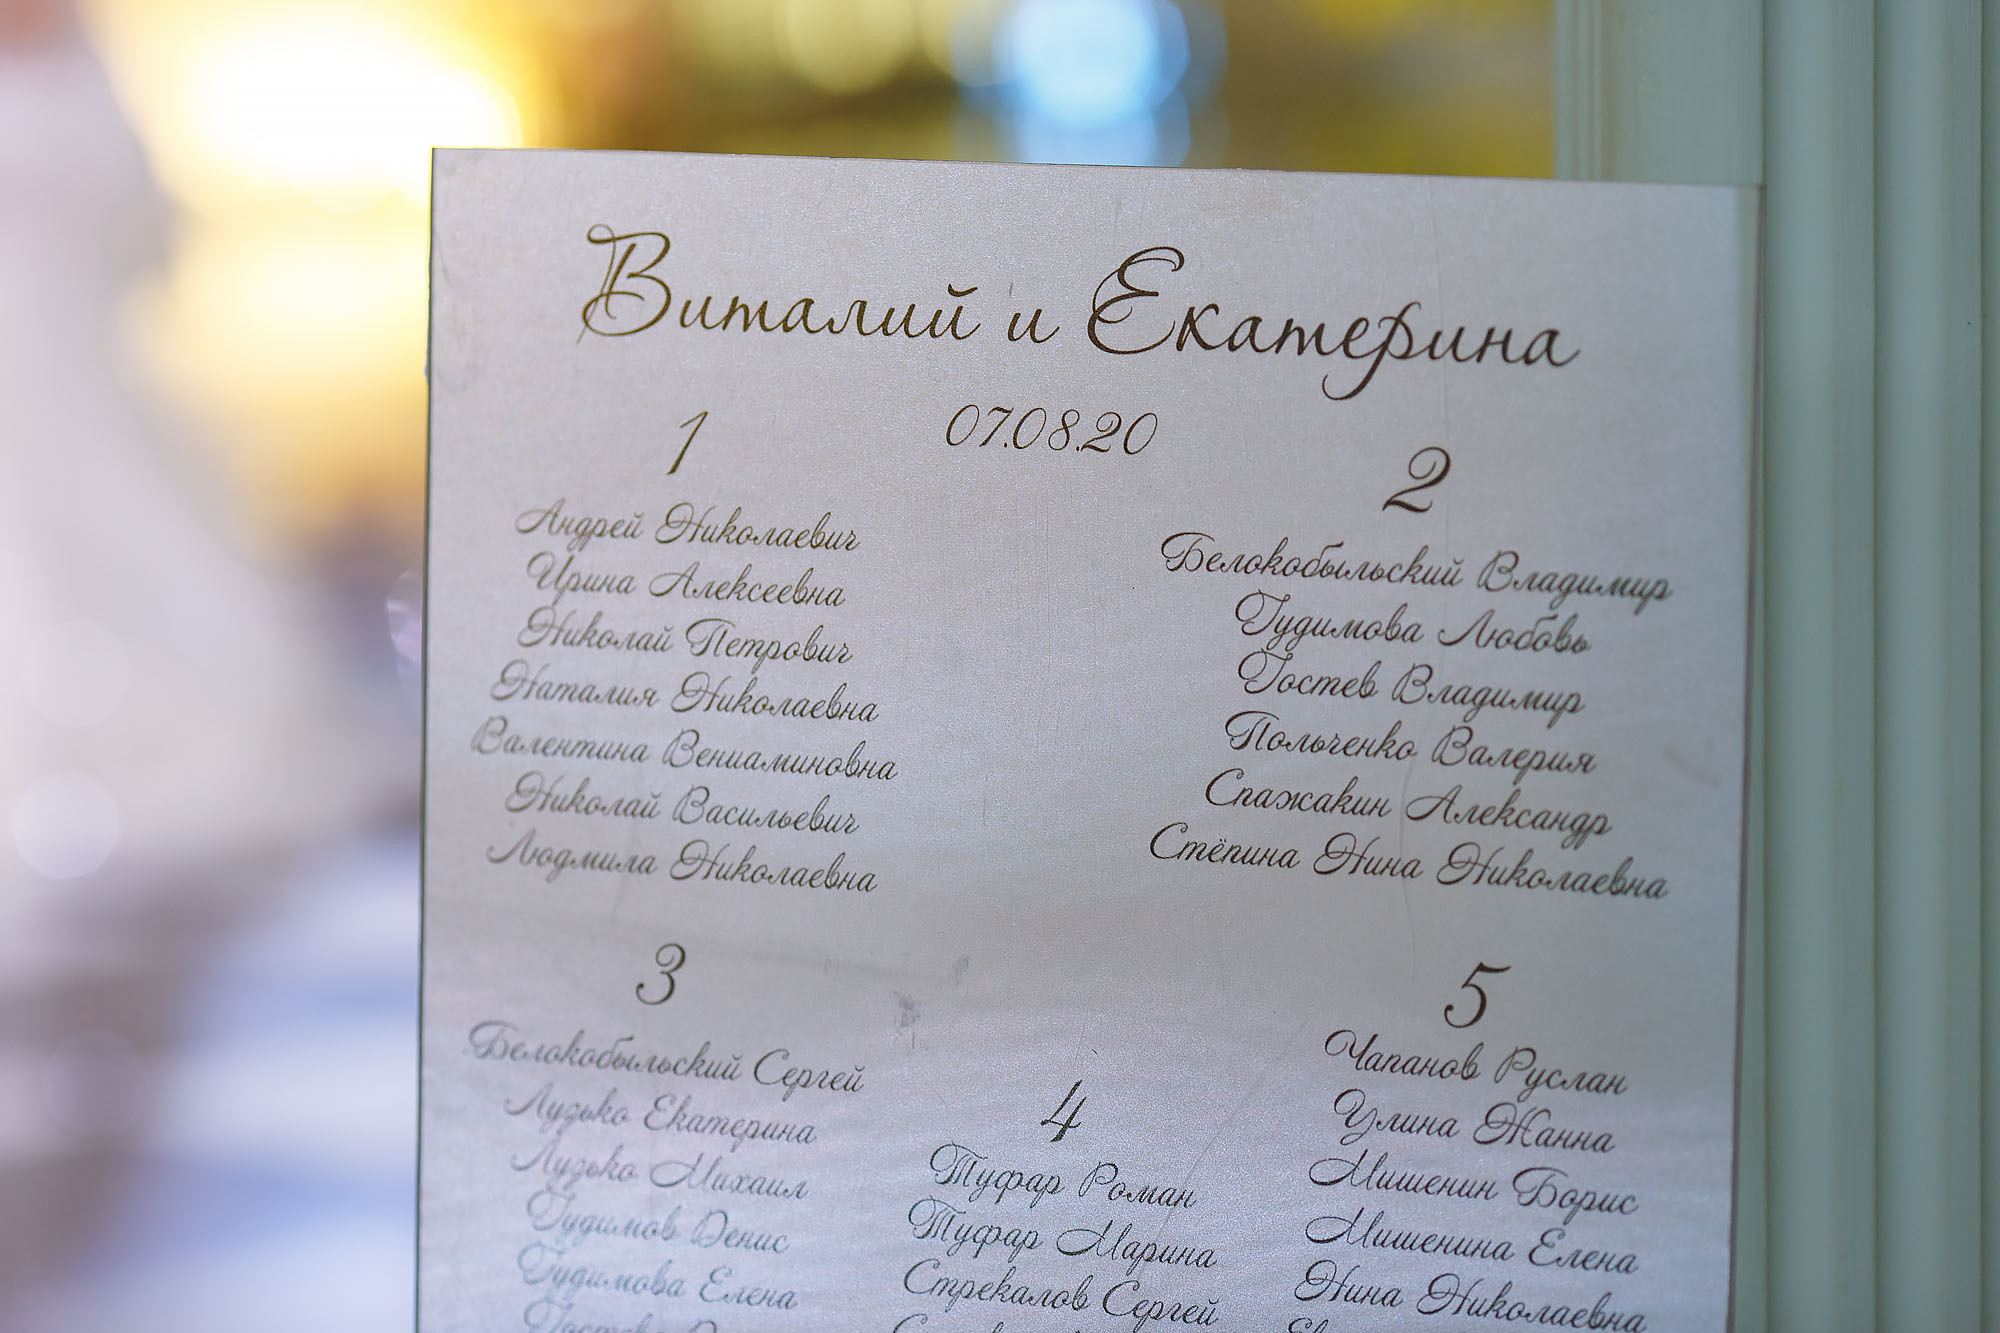 Виталий и Екатерина
07.08.20
1
Андрей Николаевич
Ирина Алексеевна
Николай Петрович
Наталия Николаевна
Валентина Вениаминовна
Николай Васильевич
Людмила Николаевна
2
Белокобыльский Владимир
Гудимова Любовь
Гостев Владимир
Польченко Валерия
Спажакин Александр
Стёпина Нина Николаевна
3
Белокобыльский Сергей
Лузько Екатерина
Лузько Михаил
Гудимов Денис
Гудимова Елена
4
Туфар Роман
Туфар Марина
Стрекалов Сергей
5
Чапанов Руслан
Улина Жанна
Мишенин Борис
Мишенина Елена
Нина Николаевна